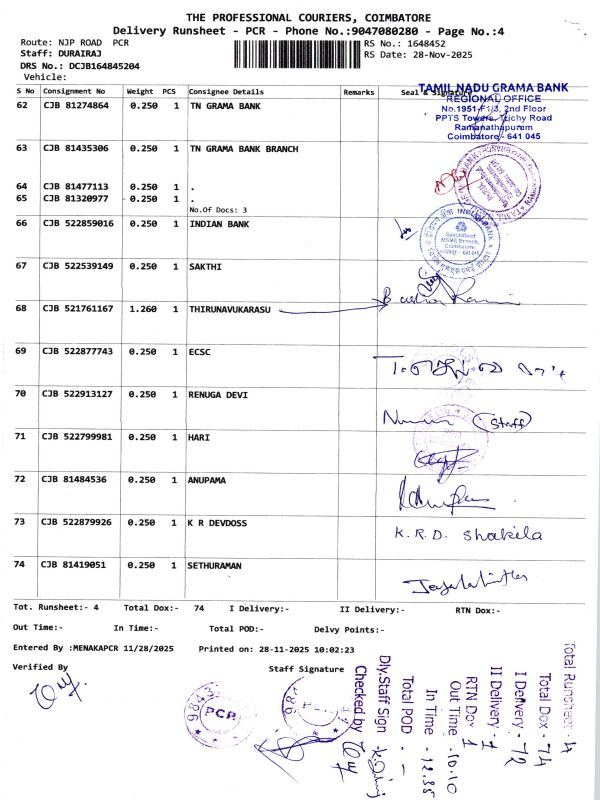 THE PROFESSIONAL COURIERS, COIMBATORE
Delivery Runsheet - PCR - Phone No.:9047080280 - Page No.:4
Route: NJP ROAD PCR
RS No.: 1648452
Staff: DURAIRAJ
RS Date: 28-Nov-2025
DRS No.: DCJB164845204
Vehicle:
S No Consignment No Weight PCS Consignee Details Remarks Seal & Signature
TAMIL NADU GRAMA BANK
REGIONAL OFFICE
No.1951-F1/3, 2nd Floor
PPTS Towers, Trichy Road
Ramanathapuram
Coimbatore - 641 045
62 CJB 81274864 0.250 1 TN GRAMA BANK
63 CJB 81435306 0.250 1 TN GRAMA BANK BRANCH
64 CJB 81477113 0.250 1 .
65 CJB 81320977 0.250 1 .
No.Of Docs: 3
66 CJB 522859016 0.250 1 INDIAN BANK
INDIAN BANK
Specialised
MSME Branch,
Coimbatore
67 CJB 522539149 0.250 1 SAKTHI
68 CJB 521761167 1.260 1 THIRUNAVUKARASU
69 CJB 522877743 0.250 1 ECSC
70 CJB 522913127 0.250 1 RENUGA DEVI
(Staff)
71 CJB 522799981 0.250 1 HARI
72 CJB 81484536 0.250 1 ANUPAMA
73 CJB 522879926 0.250 1 K R DEVDOSS
K.R.D. Shakila
74 CJB 81419051 0.250 1 SETHURAMAN
Tot. Runsheet:- 4 Total Dox:- 74 I Delivery:- II Delivery:- RTN Dox:-
Out Time:- In Time:- Total POD:- Delvy Points:-
Entered By :MENAKAPCR 11/28/2025 Printed on: 28-11-2025 10:02:23
Verified By
Staff Signature
PCR
Total Runsheet 4
Total Dox - 74
I Delivery - 72
II Delivery - 1
RTN Dox 1
Out Time - 10.10
In Time - 12.35
Total POD - -
Dly.Staff Sign
Checked by